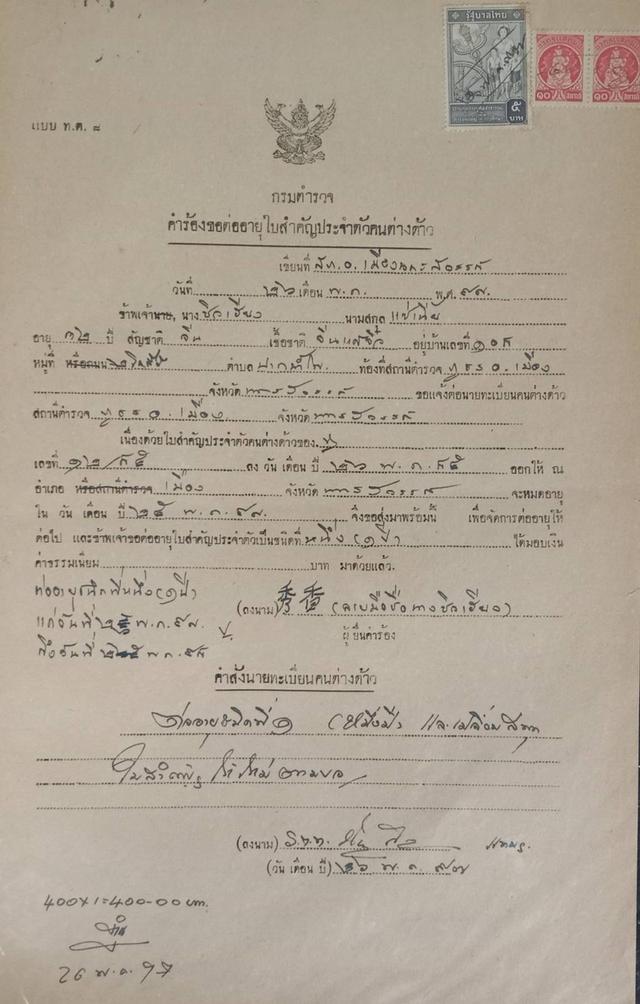 รัฐบาลไทย
๕
บาท
๑๐ ๑๐
แบบ ท.ต. ๘
กรมตำรวจ
คำร้องขอต่ออายุใบสำคัญประจำตัวคนต่างด้าว
เขียนที่ ส.ภ.อ. เมืองนครสวรรค์
วันที่ ๒๖ เดือน พ.ค. พ.ศ.
ข้าพเจ้านาย, นาง ซิลเฮียง นามสกุล แซ่เนี้ย
อายุ ๓๒ ปี สัญชาติ จีน เชื้อชาติ จีนแต้จิ๋ว อยู่บ้านเลขที่
หมู่ที่ หรือถนน ตำบล ปากน้ำโพ ท้องที่สถานีตำรวจ เมือง
จังหวัด นครสวรรค์ ขอแจ้งต่อนายทะเบียนคนต่างด้าว
สถานีตำรวจ เมือง จังหวัด นครสวรรค์
เนื่องด้วยใบสำคัญประจำตัวคนต่างด้าวของ
เลขที่ ๑๒/๙๕ ลง วัน เดือน ปี ๒๖ พ.ค. ๙๕ ออกให้ ณ
อำเภอ หรือสถานีตำรวจ เมือง จังหวัด นครสวรรค์ จะหมดอายุ
ใน วัน เดือน ปี ๒๕ พ.ค. จึงขอส่งมาพร้อมนี้ เพื่อจัดการต่ออายุให้
ต่อไป และข้าพเจ้าขอต่ออายุใบสำคัญประจำตัวเป็นชนิดที่ หนึ่ง (๑ ปี) ได้มอบเงิน
ค่าธรรมเนียม บาท มาด้วยแล้ว.
ต่ออายุชนิดที่หนึ่ง (๑ ปี)
(ลงนาม) 秀香 (ลายมือชื่อนางซิลเฮียง)
แต่วันที่ พ.ค.
ผู้ยื่นคำร้อง
ถึงวันที่ พ.ค.
คำสั่งนายทะเบียนคนต่างด้าว
ต่ออายุชนิดที่ ๑ (หนึ่งปี) และเปลี่ยนสมุด
ใบสำคัญ ให้ใหม่ตามขอ
(ลงนาม) ร.ต.ท.
(วัน เดือน ปี) ๒๖ พ.ค. ๙๗
400×1=400-00 บาท.
26 พ.ค. 97